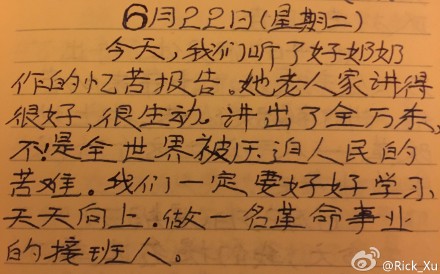 6月22日(星期二)
今天,我们听了好奶奶
作的忆苦报告。她老人家讲得
很好,很生动。讲出了全万东,
不!是全世界被压迫人民的
苦难。我们一定要好好学习,
天天向上.做一名革命事业
的接班人。
@Rick_Xu